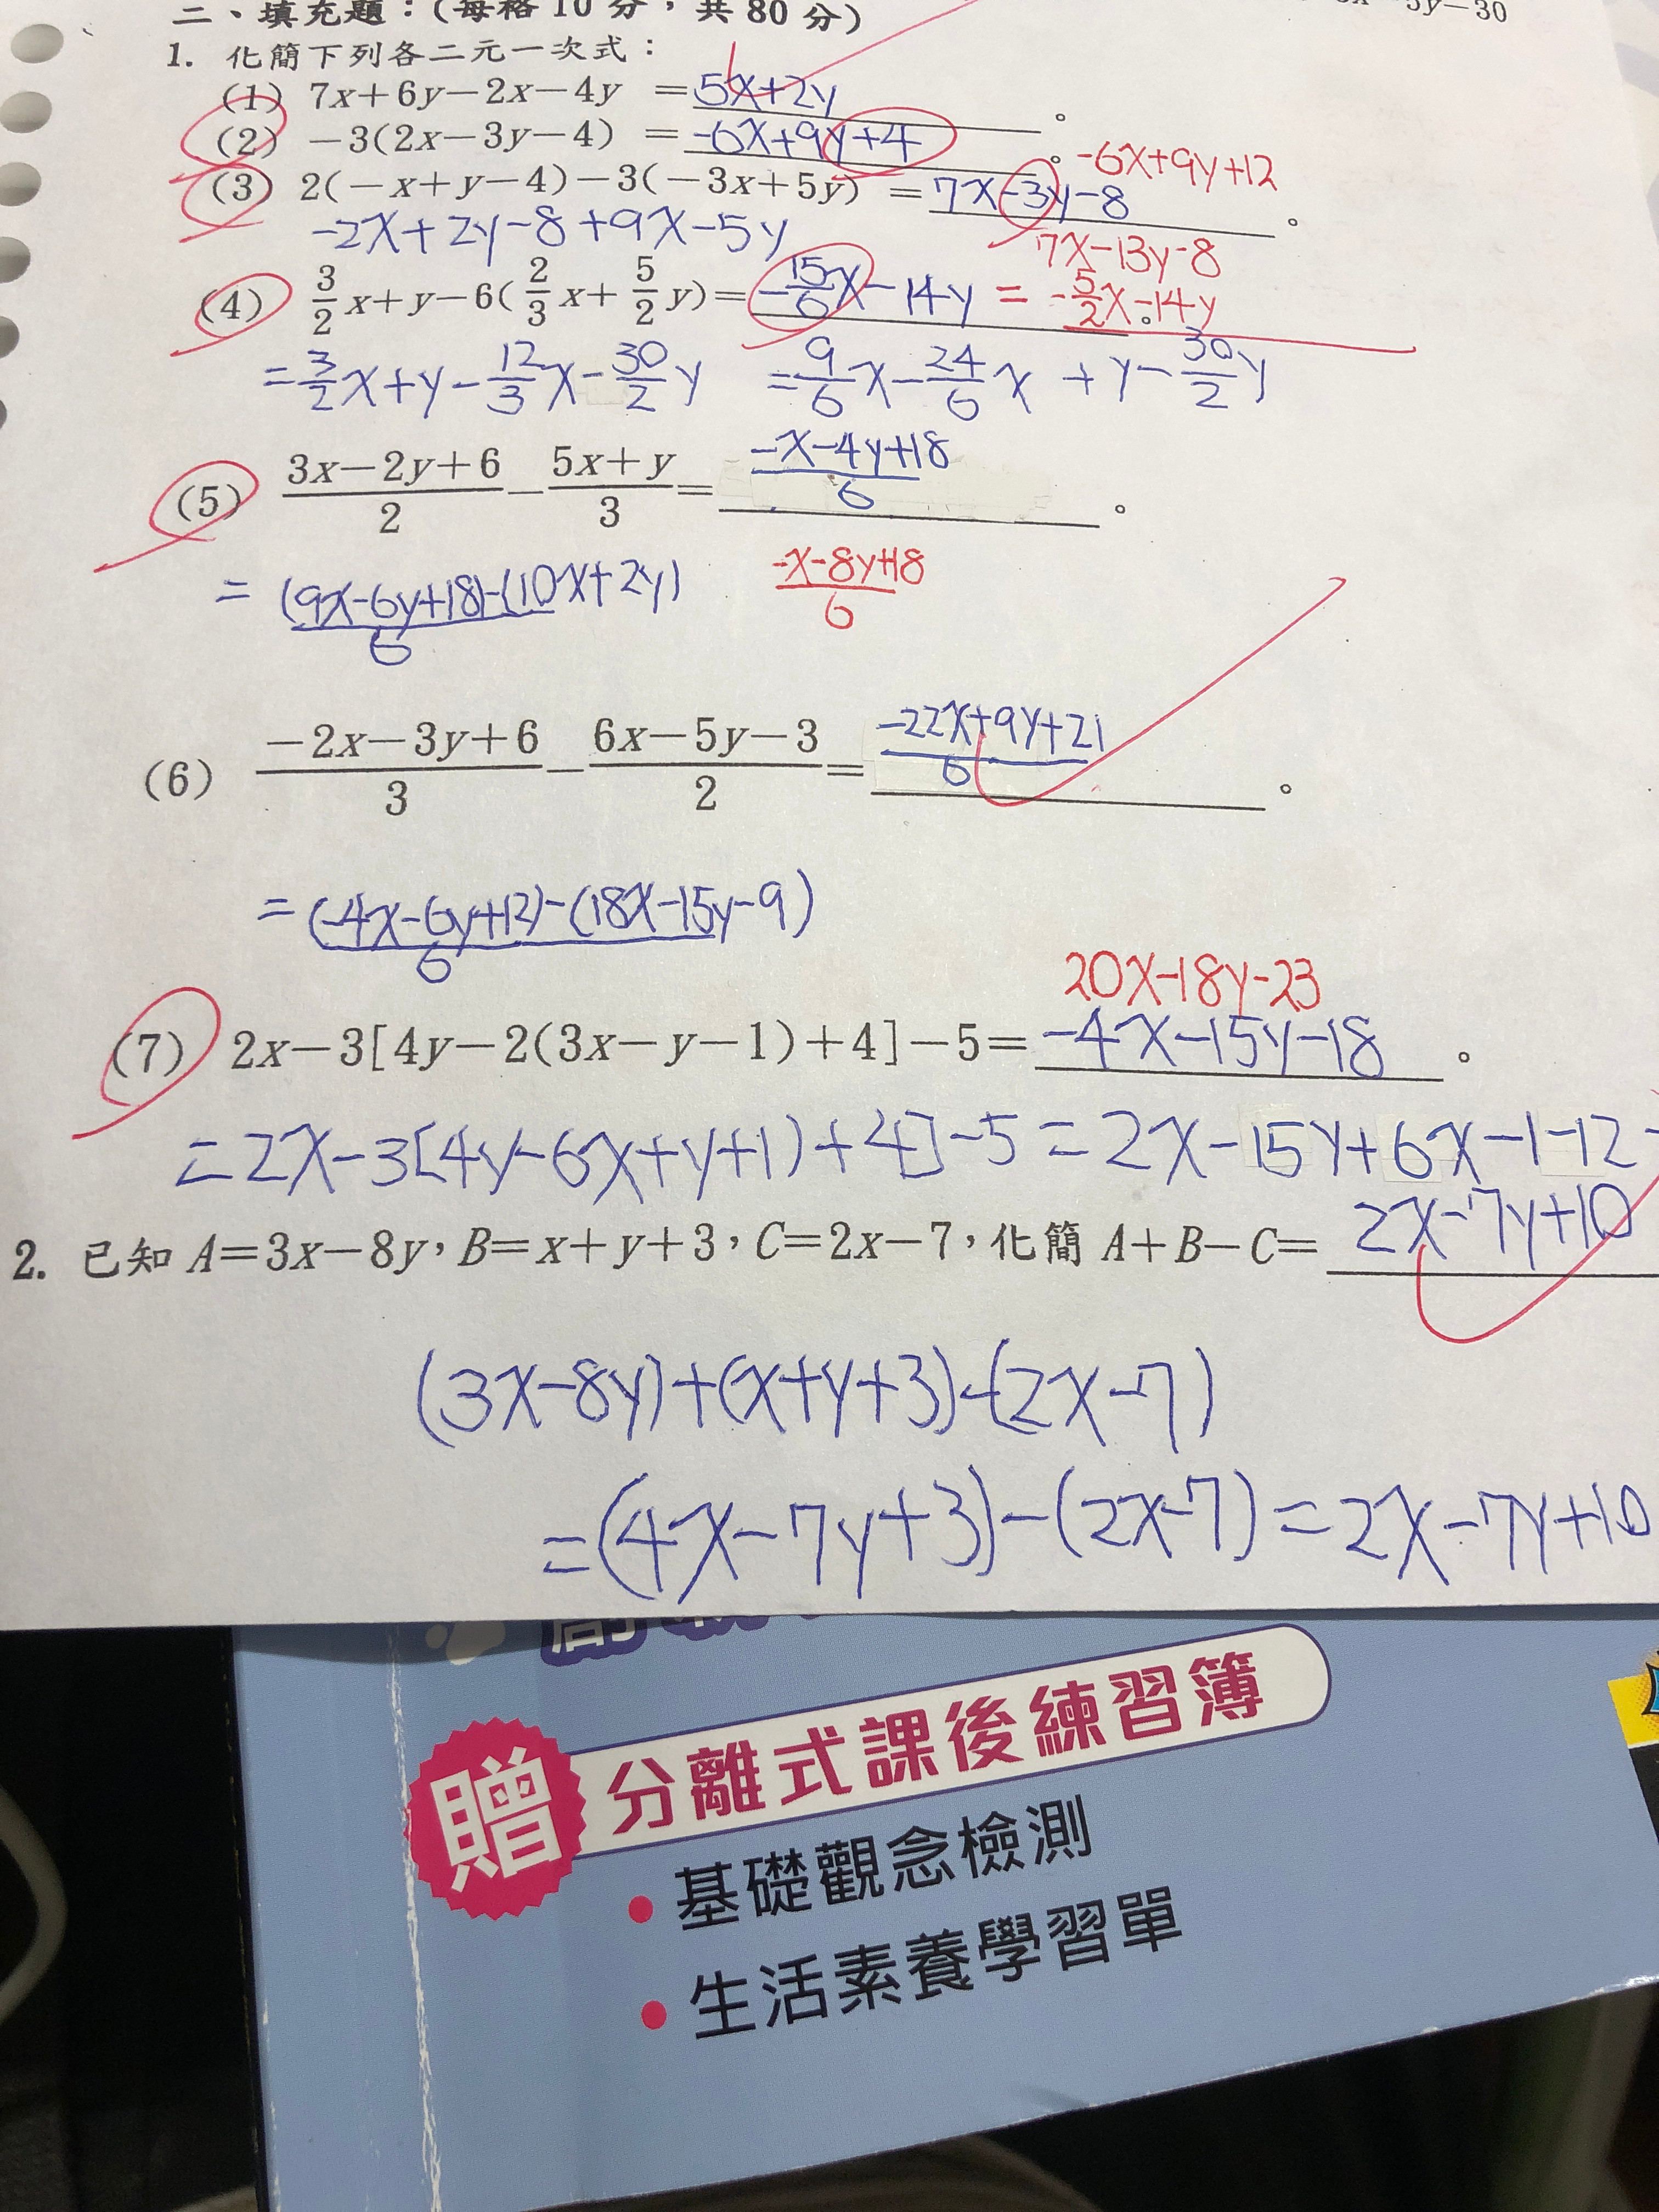 二、填充題：(每格10分，共80分)
5y－30
1. 化簡下列各二元一次式：
(1) 7x+6y－2x－4y =5x+2y。
(2) －3(2x－3y－4) =-6x+9y+4。-6x+9y+12
(3) 2(－x+y－4)－3(－3x+5y) =7x-3y-8。
-2x+2y-8+9x-5y
7x-13y-8
(4) 3/2 x+y－6(2/3 x+5/2 y)=-15/6 x-14y = -5/2 x-14y。
=3/2 x+y-12/3 x-30/2 y =9/6 x-24/6 x+y-30/2 y
(5) (3x－2y+6)/2－(5x+y)/3=(-x-4y+18)/6。
=((9x-6y+18)-(10x+2y))/6
(-x-8y+18)/6
(6) (－2x－3y+6)/3－(6x－5y－3)/2=(-22x+9y+21)/6。
=((-4x-6y+12)-(18x-15y-9))/6
20x-18y-23
(7) 2x－3[4y－2(3x－y－1)+4]－5=-4x-15y-18。
=2x-3[4y-6x+y+1)+4]-5=2x-15y+6x-1-12-
2. 已知A=3x－8y，B=x+y+3，C=2x－7，化簡A+B－C=2x-7y+10
(3x-8y)+(x+y+3)-(2x-7)
=(4x-7y+3)-(2x-7)=2x-7y+10
贈 分離式課後練習簿
•基礎觀念檢測
•生活素養學習單